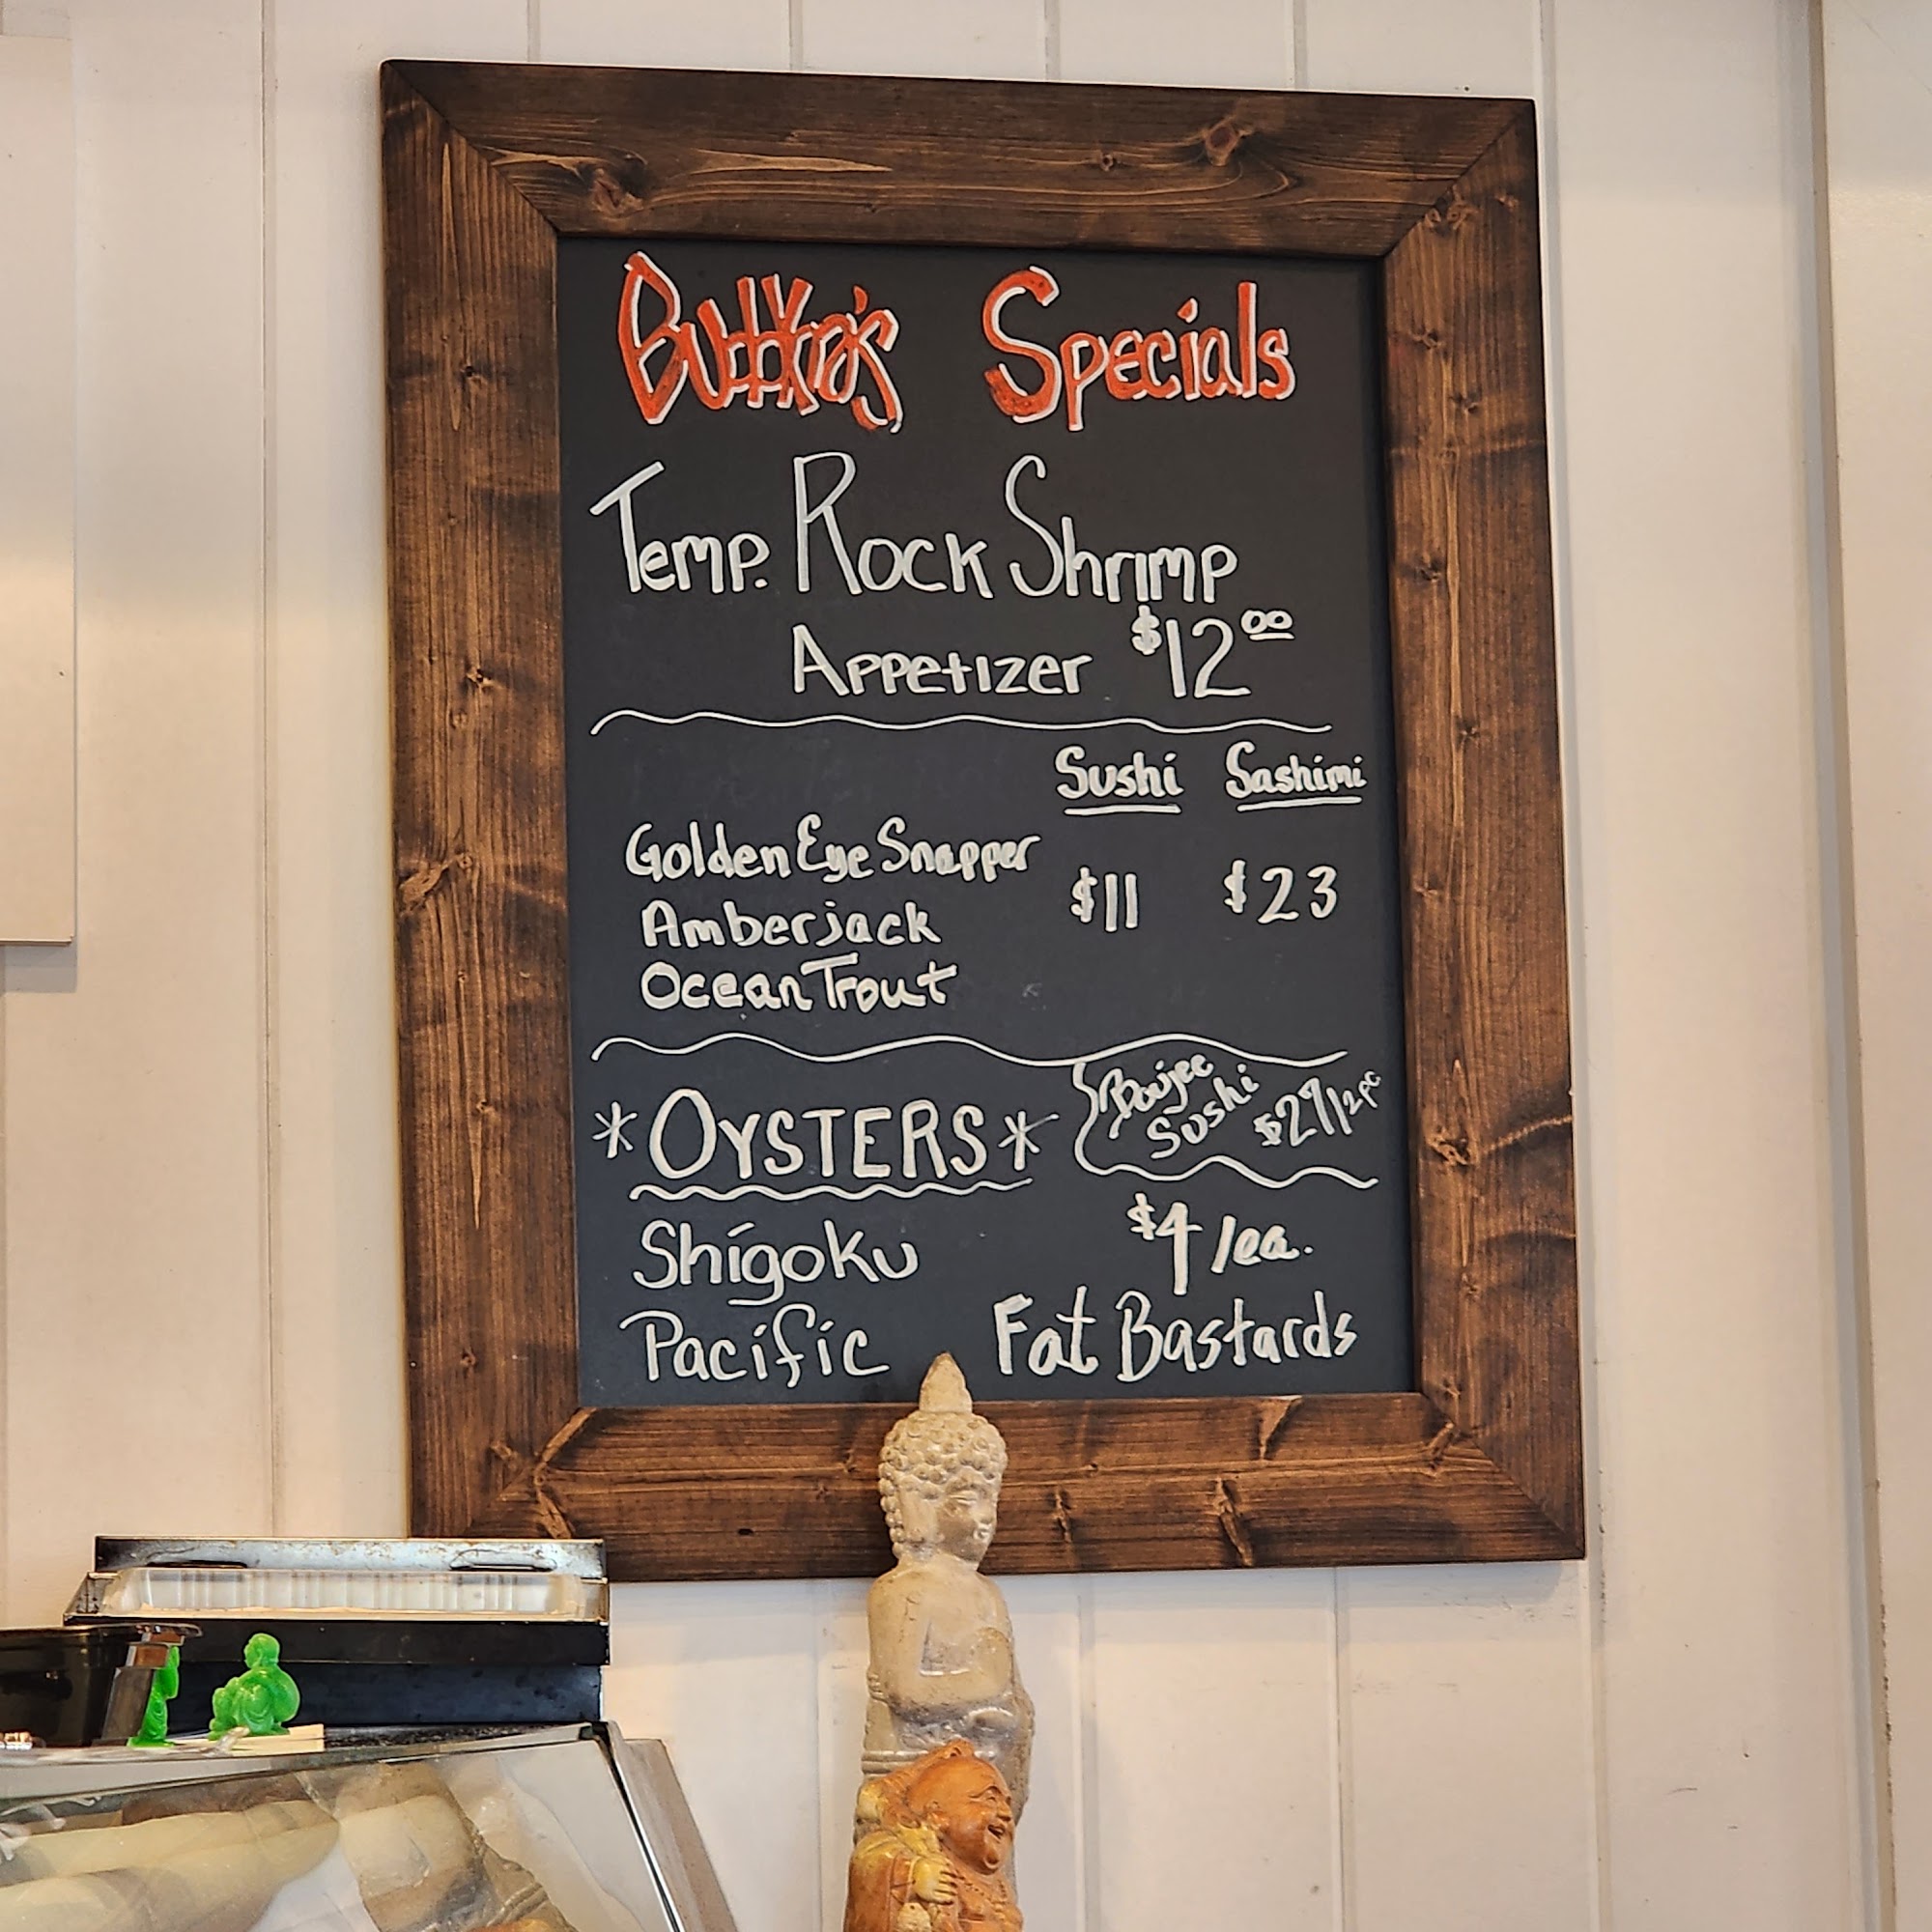 Buddha's Specials
Temp. Rock Shrimp
Appetizer $12.00
Sushi Sashimi
Golden Eye Snapper
Amberjack $11 $23
Ocean Trout
*OYSTERS*
Boujee
Sushi
$27/2pc
Shigoku $4/ea.
Pacific Fat Bastards